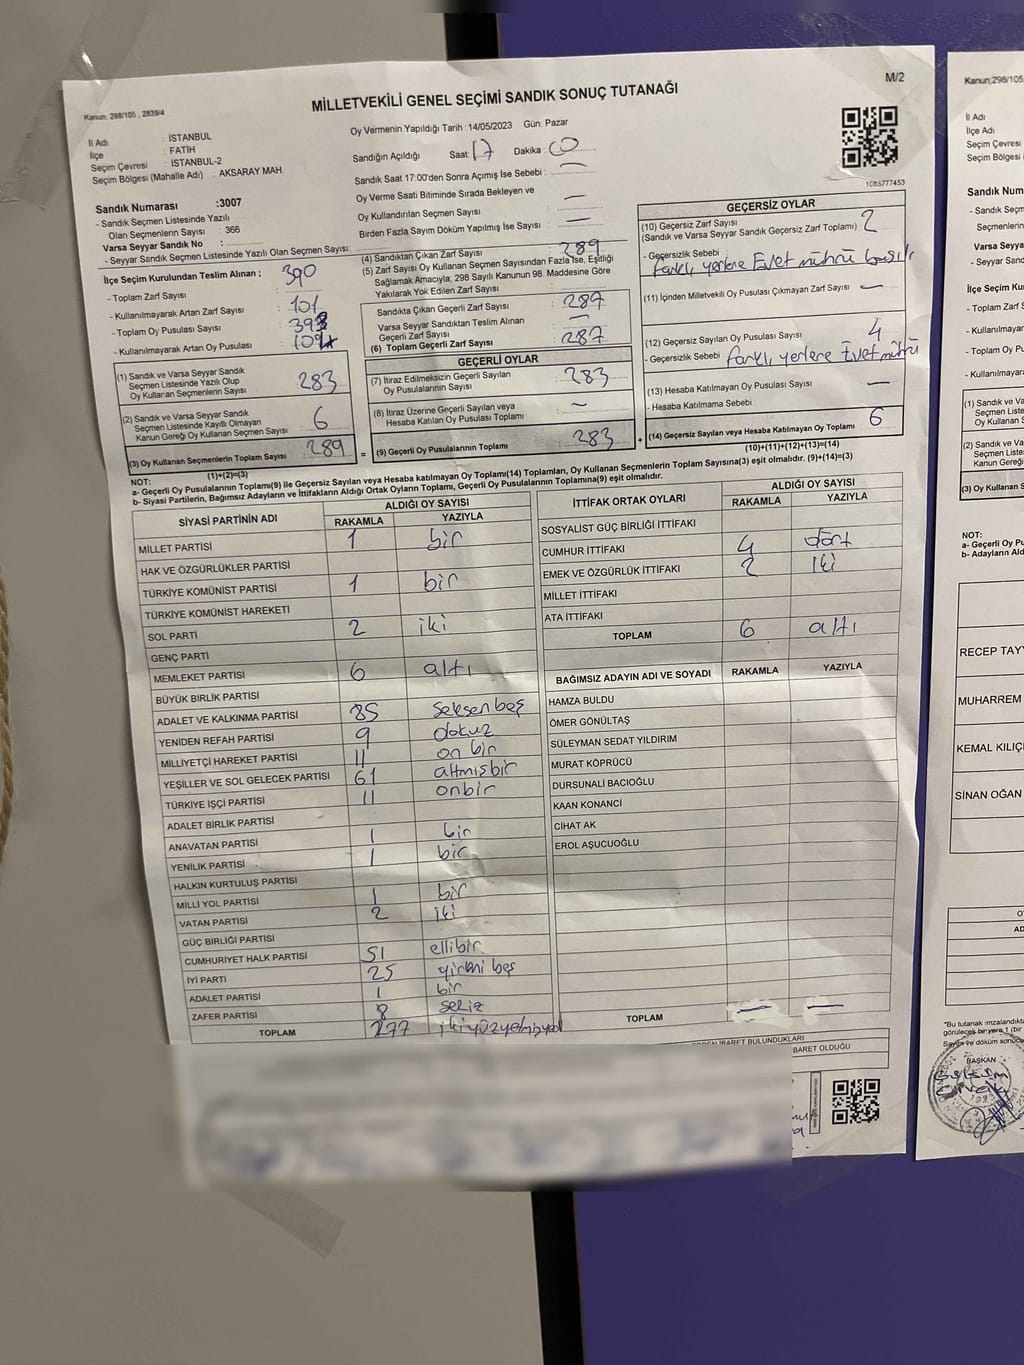 Kanun: 298/105 , 2839/4
MİLLETVEKİLİ GENEL SEÇİMİ SANDIK SONUÇ TUTANAĞI
M/2
İl Adı : İSTANBUL
İlçe : FATİH
Seçim Çevresi : İSTANBUL-2
Seçim Bölgesi (Mahalle Adı) : AKSARAY MAH.
Sandık Numarası :3007
- Sandık Seçmen Listesinde Yazılı
Olan Seçmenlerin Sayısı : 366
Varsa Seyyar Sandık No :
- Seyyar Sandık Seçmen Listesinde Yazılı Olan Seçmen Sayısı:
Oy Vermenin Yapıldığı Tarih :14/05/2023 Gün: Pazar
Sandığın Açıldığı Saat: 17 Dakika : 00
Sandık Saat 17:00'den Sonra Açılmış İse Sebebi : —
Oy Verme Saati Bitiminde Sırada Bekleyen ve
Oy Kullandırılan Seçmen Sayısı —
Birden Fazla Sayım Döküm Yapılmış İse Sayısı : —
1083777453
İlçe Seçim Kurulundan Teslim Alınan ;
- Toplam Zarf Sayısı 390
- Kullanılmayarak Artan Zarf Sayısı 101
- Toplam Oy Pusulası Sayısı
- Kullanılmayarak Artan Oy Pusulası
(1) Sandık ve Varsa Seyyar Sandık
Seçmen Listesinde Yazılı Olup
Oy Kullanan Seçmenlerin Sayısı : 283
(2) Sandık ve Varsa Seyyar Sandık
Seçmen Listesinde Kayıtlı Olmayan
Kanun Gereği Oy Kullanan Seçmen Sayısı : 6
(3) Oy Kullanan Seçmenlerin Toplam Sayısı : 289
(1)+(2)=(3)
(4) Sandıktan Çıkan Zarf Sayısı : 289
(5) Zarf Sayısı Oy Kullanan Seçmen Sayısından Fazla İse, Eşitliği
Sağlamak Amacıyla; 298 Sayılı Kanunun 98. Maddesine Göre
Yakılarak Yok Edilen Zarf Sayısı :
Sandıkta Çıkan Geçerli Zarf Sayısı : 287
Varsa Seyyar Sandıktan Teslim Alınan
Geçerli Zarf Sayısı : —
(6) Toplam Geçerli Zarf Sayısı : 287
GEÇERLİ OYLAR
(7) İtiraz Edilmeksizin Geçerli Sayılan
Oy Pusulalarının Sayısı : 283
(8) İtiraz Üzerine Geçerli Sayılan veya
Hesaba Katılan Oy Pusulası Toplamı : —
= (9) Geçerli Oy Pusulalarının Toplamı : 283
GEÇERSİZ OYLAR
(10) Geçersiz Zarf Sayısı : 2
(Sandık ve Varsa Seyyar Sandık Geçersiz Zarf Toplamı)
- Geçersizlik Sebebi
farklı yerlere Evet mührü basılı
(11) İçinden Milletvekili Oy Pusulası Çıkmayan Zarf Sayısı : —
(12) Geçersiz Sayılan Oy Pusulası Sayısı : 4
- Geçersizlik Sebebi : farklı yerlere Evet mührü
(13) Hesaba Katılmayan Oy Pusulası Sayısı : —
- Hesaba Katılmama Sebebi :
+ (14) Geçersiz Sayılan veya Hesaba Katılmayan Oy Toplamı : 6
(10)+(11)+(12)+(13)=(14)
NOT:
a- Geçerli Oy Pusulalarının Toplamı(9) ile Geçersiz Sayılan veya Hesaba katılmayan Oy Toplamı(14) Toplamları, Oy Kullanan Seçmenlerin Toplam Sayısına(3) eşit olmalıdır. (9)+(14)=(3)
b- Siyasi Partilerin, Bağımsız Adayların ve İttifakların Aldığı Ortak Oyların Toplamı, Geçerli Oy Pusulalarının Toplamına(9) eşit olmalıdır.
SİYASİ PARTİNİN ADI ALDIĞI OY SAYISI
RAKAMLA YAZIYLA
MİLLET PARTİSİ 1 bir
HAK VE ÖZGÜRLÜKLER PARTİSİ
TÜRKİYE KOMÜNİST PARTİSİ 1 bir
TÜRKİYE KOMÜNİST HAREKETİ
SOL PARTİ 2 iki
GENÇ PARTİ
MEMLEKET PARTİSİ 6 altı
BÜYÜK BİRLİK PARTİSİ
ADALET VE KALKINMA PARTİSİ 85 seksen beş
YENİDEN REFAH PARTİSİ 9 dokuz
MİLLİYETÇİ HAREKET PARTİSİ 11 on bir
YEŞİLLER VE SOL GELECEK PARTİSİ 61 altmışbir
TÜRKİYE İŞÇİ PARTİSİ 11 onbir
ADALET BİRLİK PARTİSİ
ANAVATAN PARTİSİ 1 bir
YENİLİK PARTİSİ 1 bir
HALKIN KURTULUŞ PARTİSİ
MİLLİ YOL PARTİSİ 1 bir
VATAN PARTİSİ 2 iki
GÜÇ BİRLİĞİ PARTİSİ
CUMHURİYET HALK PARTİSİ 51 ellibir
İYİ PARTİ 25 yirmi beş
ADALET PARTİSİ 1 bir
ZAFER PARTİSİ 8 sekiz
TOPLAM 277 ikiyüzyetmişyedi
İTTİFAK ORTAK OYLARI ALDIĞI OY SAYISI
RAKAMLA YAZIYLA
SOSYALİST GÜÇ BİRLİĞİ İTTİFAKI
CUMHUR İTTİFAKI 4 dört
EMEK VE ÖZGÜRLÜK İTTİFAKI 2 iki
MİLLET İTTİFAKI
ATA İTTİFAKI
TOPLAM 6 altı
BAĞIMSIZ ADAYIN ADI VE SOYADI RAKAMLA YAZIYLA
HAMZA BULDU
ÖMER GÖNÜLTAŞ
SÜLEYMAN SEDAT YILDIRIM
MURAT KÖPRÜCÜ
DURSUNALİ BACIOĞLU
KAAN KONANCİ
CİHAT AK
EROL AŞUCUOĞLU
TOPLAM — —
İBARET BULUNDUKLARI
BARET OLDUĞU
Kanun:298/105
İl Adı
İlçe Adı
Seçim Çevresi
Seçim Bölgesi
Sandık Num
- Sandık Seçm
Seçmenlerin
Varsa Seyya
- Seyyar Sand
İlçe Seçim Ku
- Toplam Zarf
- Kullanılmaya
- Toplam Oy Pu
- Kullanılmaya
(1) Sandık ve Va
Seçmen Liste
Oy Kullanan S
(2) Sandık ve Va
Seçmen Liste
Kanun Gereği
(3) Oy Kullanan S
NOT:
a- Geçerli Oy Pu
b- Adayların Ald
RECEP TAYY
MUHARREM
KEMAL KILIÇ
SİNAN OĞAN
AD
*Bu tutanak imzalandıkta
görülecek bir yere 1 (bir
Sayım ve döküm sonucu
BAŞKAN